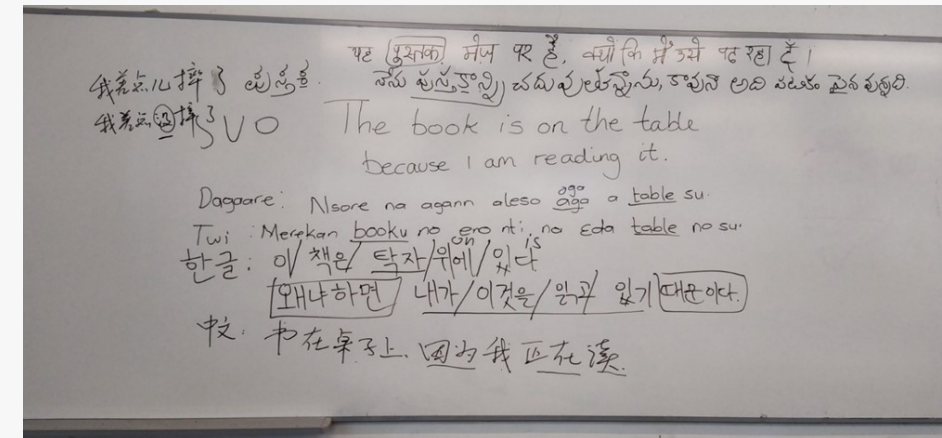 यह पुस्तक मेज पर है, क्यों कि मैं उसे पढ़ रहा हूँ।
我差点儿摔了 పుస్తక
నేను పుస్తకాన్ని చదువుతున్నాను, కావున అది పైన వున్నది.
我差点没摔了
VO
The book is on the table
because I am reading it.
oga
Dagaare: Nsore na agann aleso aga a table su.
Twi: Merekan booku no eno nti, na ɛda table no su.
on is
한글: 이/책은/탁자/위에/있다
왜냐하면 내가/이것을/읽고/있기 때문이다.
中文: 书在桌子上, 因为我正在读.